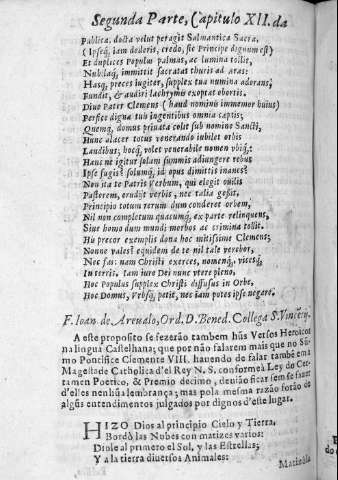 Segunda Parte, Capitulo XII. da
Publica, docta velut peragit Salmantica Sacra,
(Ipseq, iam dederis, credo, sie Principe dignum est)
Et duplices Populus palmas, ac lumina tollit,
Nubilaq, immittit sacratas thuris ad aras:
Hasq, preces iugiter, supplex tua numina adorans,
Fundit, & audiri lachrymis exoptat obortis.
Diue Pater Clemens (haud nominis immemor huius)
Perfice digna tuis ingentibus omnia captis;
Quemq, domus priuata colit sub nomine Sancti,
Hunc alacer totus venerando iubilet orbis
Laudibus; hocq, volet venerabile nomen vbiq;:
Haus ne igitur solum summis adiungere rebus
Ipse sugis? solumq, id opus dimittis inane?
Non ita te Patris Verbum, qui elegit ouilis
Pastorem, erudijt verbis, nec talia gessit.
Principio totum rerum dum conderet orbem,
Nil non completum quacumq, ex parte relinquens,
Siue homo dum mundi morbos ac crimina tollit.
His precor exemplis dona hoc mitissime Clement;
Nonne vales? equidem de te nil tale verebor,
Nec fas: nam Christi exerces, nomenq, vicesq,
In terris. tam iure Dei nunc vtere pleno,
Hoc Populus supplex Christi diffusus in Orbe,
Hoc Domus, Vrbsq, petit, nec iam potes ipse negare.
F. Ioan. de Areualo, Ord. D. Bened. Collega S. Vincẽtij.
A este proposito se fezerão tambem hũs Versos Heroicos
na lingua Castelhana; que por não falarem mais que no Sũ-
mo Pontifice Clemente VIII. hauendo de falar tambẽ em a
Magestade Catholica d'el Rey N. S. conforme á Ley do Cer-
tamen Poetico, & Premio decimo, deuião ficar sem se fazer
d'elles nenhũa lembrança; mas pola mesma razão forão de
algũs entendimentos julgados por dignos d'este lugar.
HIZO Dios al principio Cielo y Tierra,
Bordò las Nubes con matizes varios:
Diole al primero el Sol, y las Estrellas;
Y a la tierra diuersos Animales:
Matizòla